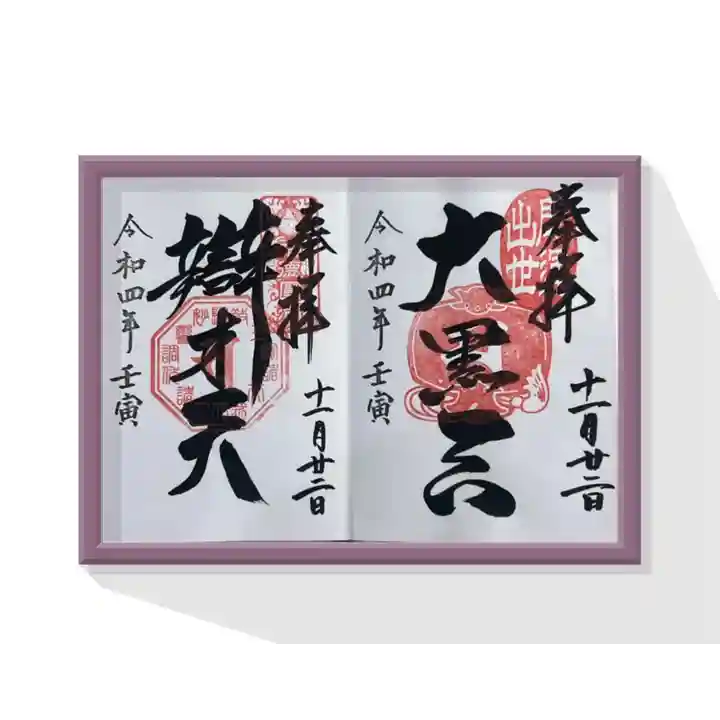 奉拝
大黒天
十一月廿二日
令和四年 壬寅
出世
奉拝
辯才天
十一月廿二日
令和四年 壬寅